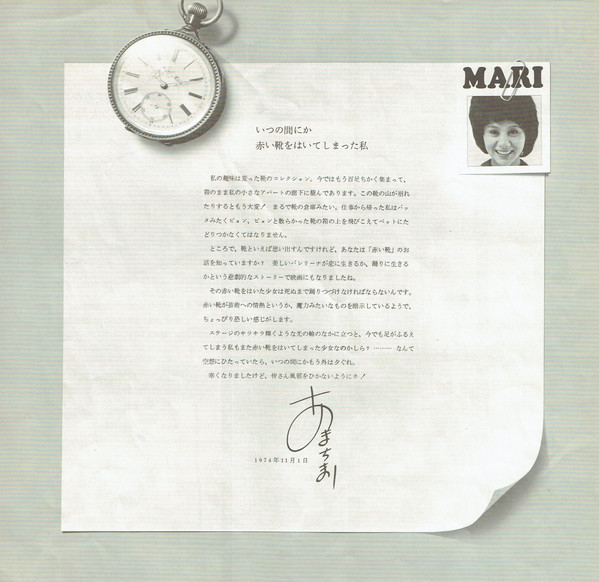 MARI
いつの間にか
赤い靴をはいてしまった私
私の趣味は変った靴のコレクション。今ではもう百足ちかく集まって、
箱のまま私の小さなアパートの廊下に積んであります。この靴の山が崩れ
たりするともう大変! まるで靴の倉庫みたい。仕事から帰った私はバッ
タみたくピョン、ピョンと散らかった靴の箱の上を飛びこえてベットにた
どりつかなくてはなりません。
ところで、靴といえば思い出すんですけれど、あなたは「赤い靴」のお
話を知っていますか? 美しいバレリーナが恋に生きるか、踊りに生きる
かという悲劇的なストーリーで映画にもなりましたね。
その赤い靴をはいた少女は死ぬまで踊りつづけなければならないんです。
赤い靴が芸術への情熱というか、魔力みたいなものを暗示しているようで、
ちょっぴり恐しい感じがします。
ステージのキラキラ輝くような光の輪のなかに立つと、今でも足がふるえ
てしまう私もまた赤い靴をはいてしまった少女なのかしら? ……… なんて
空想にひたっていたら、いつの間にかもう外は夕ぐれ。
寒くなりましたけど、皆さん風邪をひかないようにネ!
あまちまり
1974年11月1日